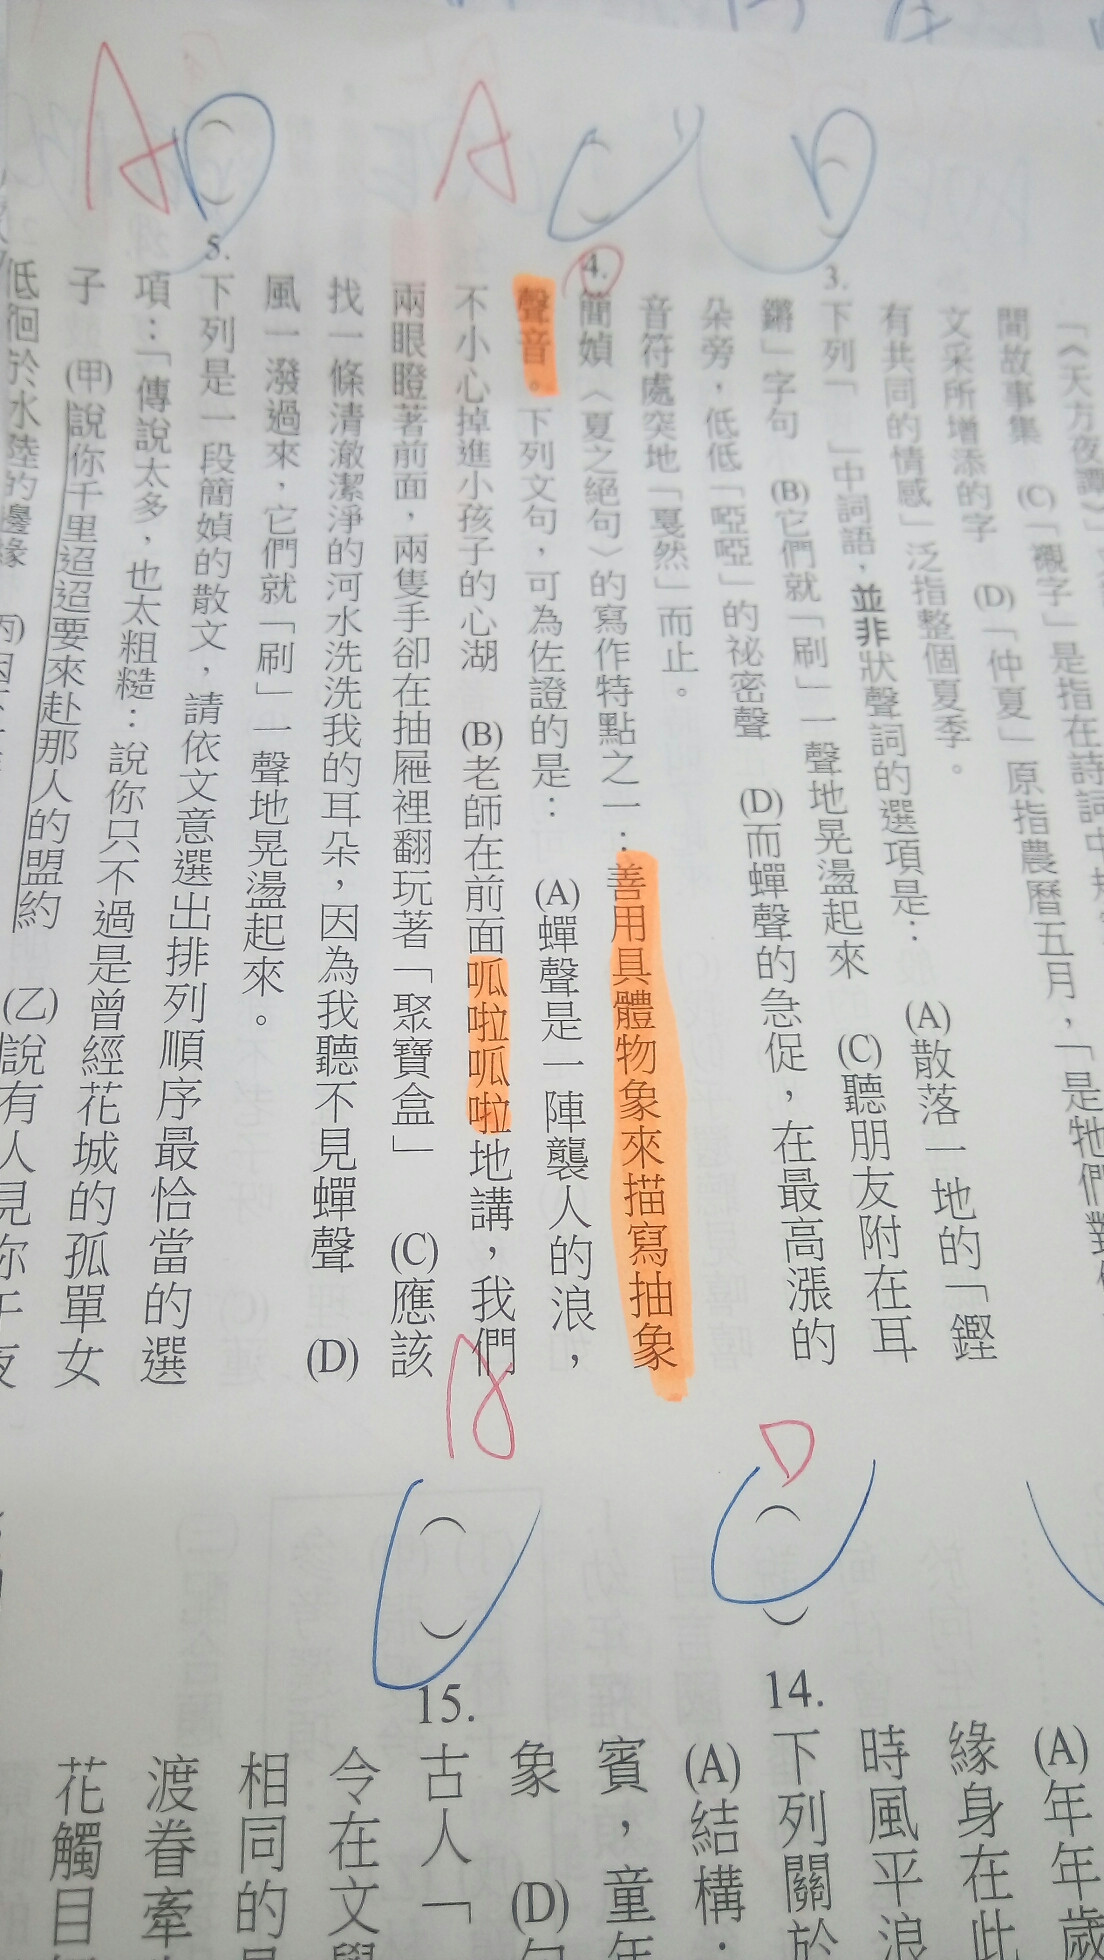 「《天方夜譚》
間故事集　(C)「襯字」是指在詩詞中
文采所增添的字　(D)「仲夏」原指農曆五月，「是牠們對
有共同的情感」泛指整個夏季。
3. 下列「　」中詞語，並非狀聲詞的選項是：　(A)散落一地的「鏗
鏘」字句　(B)它們就「刷」一聲地晃盪起來　(C)聽朋友附在耳
朵旁，低低「啞啞」的祕密聲　(D)而蟬聲的急促，在最高漲的
音符處突地「戛然」而止。
4. 簡媜〈夏之絕句〉的寫作特點之一：善用具體物象來描寫抽象
聲音。下列文句，可為佐證的是：　(A)蟬聲是一陣襲人的浪，
不小心掉進小孩子的心湖　(B)老師在前面呱啦呱啦地講，我們
兩眼瞪著前面，兩隻手卻在抽屜裡翻玩著「聚寶盒」　(C)應該
找一條清澈潔淨的河水洗洗我的耳朵，因為我聽不見蟬聲　(D)
風一潑過來，它們就「刷」一聲地晃盪起來。
5. 下列是一段簡媜的散文，請依文意選出排列順序最恰當的選
項：「傳說太多，也太粗糙：說你只不過是曾經花城的孤單女
子　(甲)說你千里迢迢要來赴那人的盟約　(乙)說有人見你午夜
低徊於水陸的邊緣　(丙)因
A
D
A
C
D
A
D
(A)年年歲
緣身在此
時風平浪
14. 下列關於
(A)結構：
賓，童年
象　(D)
15. 古人「
令在文學
相同的
渡眷牽
花觸目